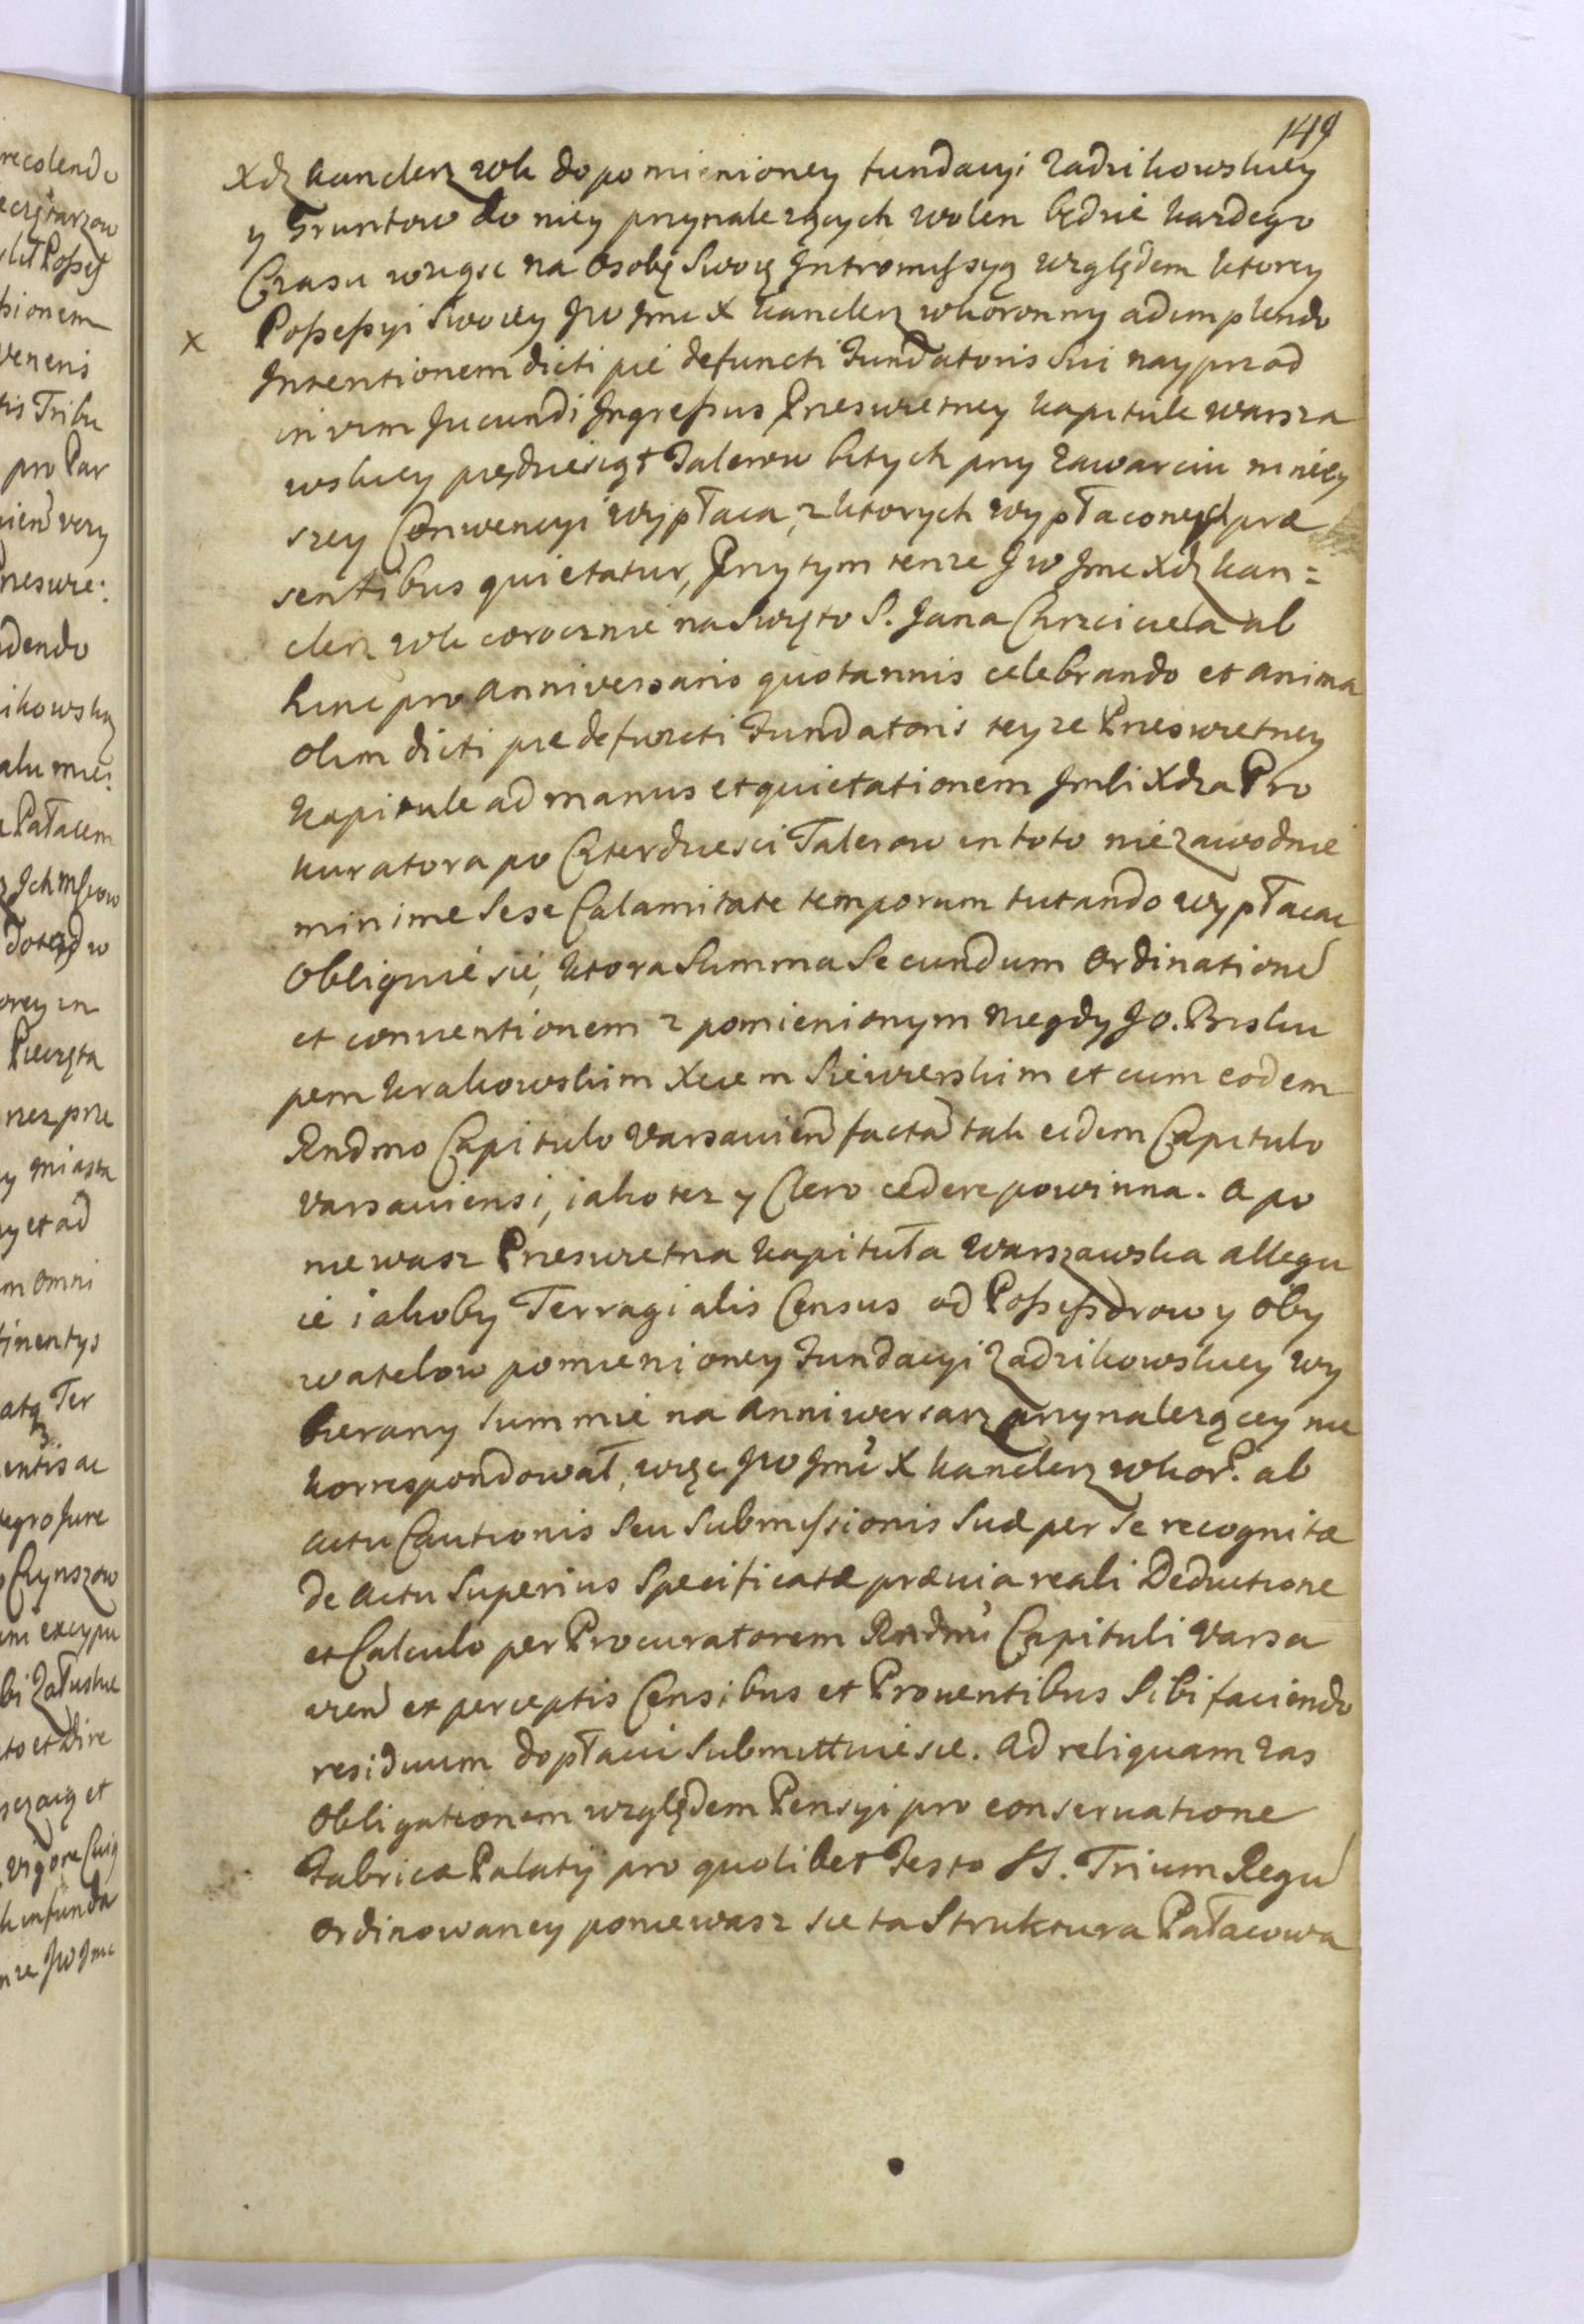 149
Xdz kanclerz wk do pomienioney fundacyi Zadzikowskiey
y Gruntow do niey przynalezących wolen będzie kazdego
Czasu wziąsc na Osobę Swoię Intromissyą względem ktorey
x Possessyi Swoiey JW Jmc X kanclerz wkoronny adimplendo
Intentionem dicti pie defuncti Fundatoris Sui nayprzod
in vim Jucundi Ingressus Przeswietney kapitule warsza
wskiey pięcdziesiąt Talerow bitych przy zawarciu niniey
szey Conwencyi wypłaca, z ktorych wypłaconych præ
sentibus quietatur, Przytym tenze JW Jmc Xdz kan=
clerz wk corocznie na Swięto S. Jana Chrzciciela ab
hinc pro anniversario quotannis celebrando et anima
olim dicti pie defuncti Fundatoris teyze Przeswietney
kapitule ad manus et quietationem Jmci Xdza Pro
kuratora po Czterdziesci Talerow in toto niezawodnie
minime Sese Calamitate temporum tutando wypłacac
Obliguie sie, ktora Summa Secundum Ordinatione
et conventionem z pomienionym niegdy JO. Bisku
pem krakowskim Xciem Siewierskim et cum eodem
Rndmo Capitulo Varsavien facta tak eidem Capitulo
varsaviensi, iako tez y Clero cedere powinna. A po
niewasz Przeswietna kapituła warszawska allegu
ie iakoby Terragialis Census od Possessorow y Oby
watelow pomienioney Fundacyi Zadzikowskiey wy
bierany Summie na Anniwersarz przynalezącey nie
korrespondował, więc JW Jmc X kanclerz wkor. ab
actu Cautionis Seu Submissionis Suæ per Se recognitæ
de actu Superius Specificatæ prævia reali Deductione
et Calculo per Procuratorem Rndmi Capituli Varsa
vien ex perceptis Censibus et Proventibus Sibi faciendo
residuum dopłacic Submittuie sie. Ad reliquam zas
Obligationem względem Pensyi pro conservatione
Fabricæ Palatij pro quolibet Festo SS. Trium Regu
Ordinowaney poniewasz sie ta Struktura Pałacowa